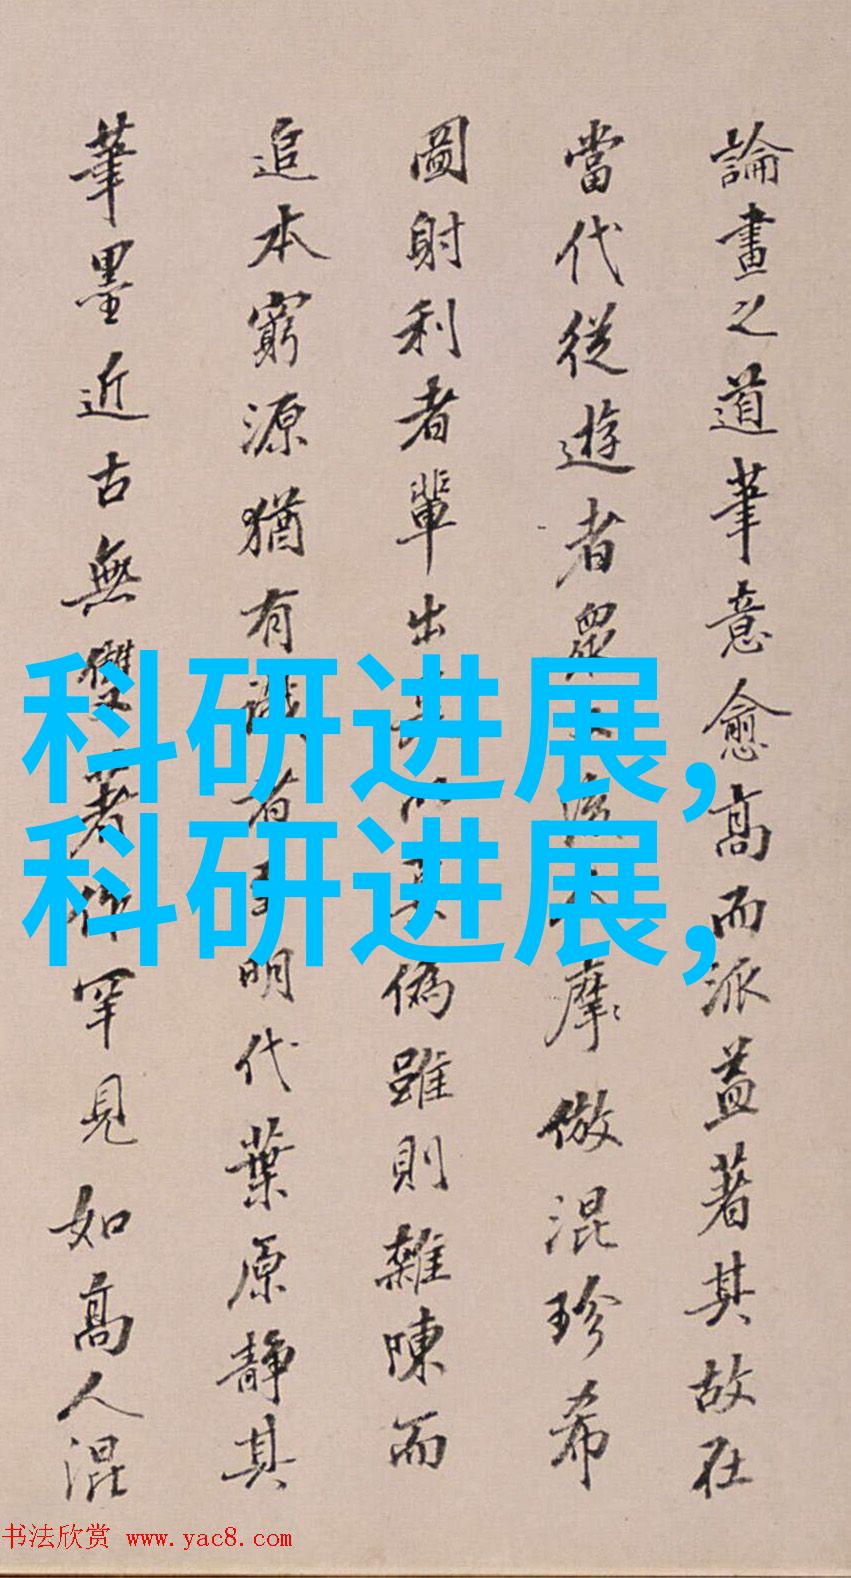 論畫之道筆意愈高而派益著其故在
當代從遊者眾摩倣混珍希
圖射利者輩出偽雖則雜陳而
追本窮源猶有識者明代葉原靜其
筆墨近古無雙著作罕見如高人混
科研进展,
科研进展,
书法欣赏 www.yac8.com